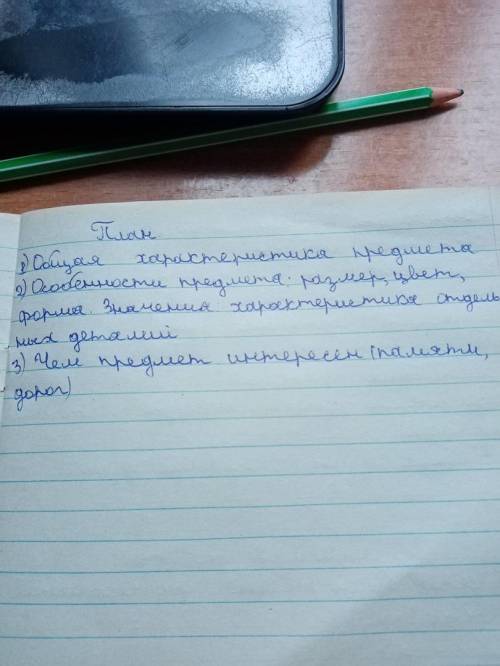 План
1) Общая характеристика предмета
2) Особенности предмета: размер, цвет,
форма. Значения характеристика отдель
ных деталий
3) Чем предмет интересен (памяти,
дорог)